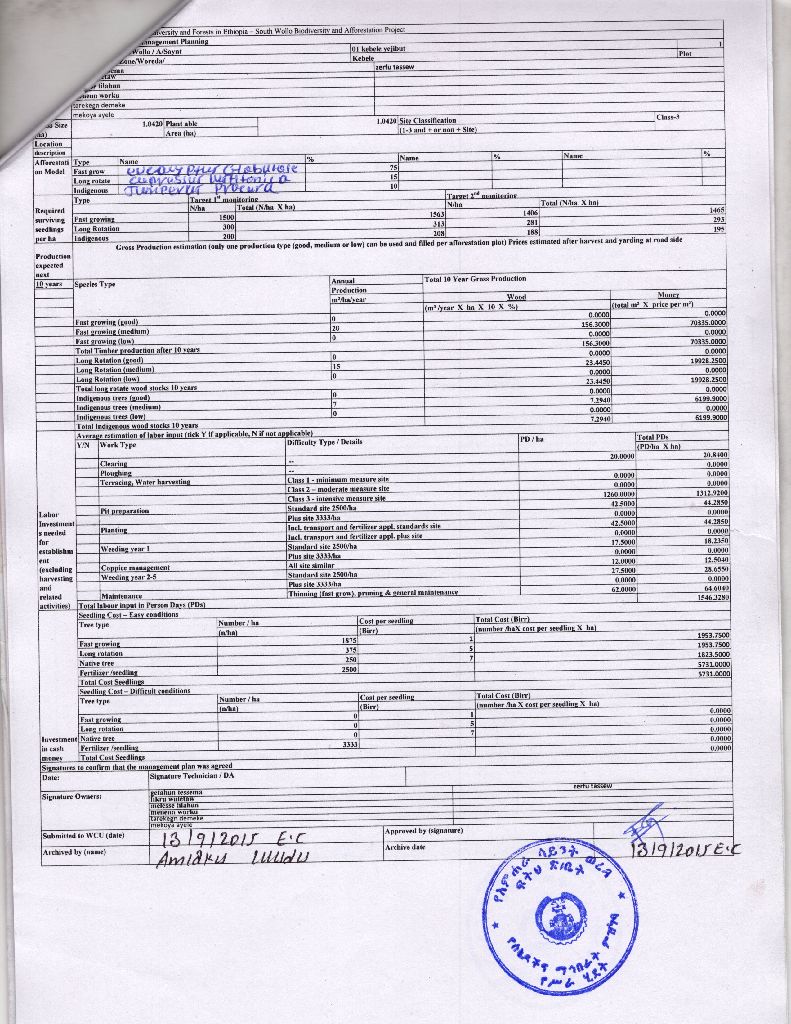 iversity and Forests in Ethiopia – South Wollo Biodiversity and Afforestation Project
anagement Planning
Wollo / A/Saynt 01 kebele yejibut 1
Zone/Woreda/ Kebele Plot
zerfu tassew
tilahun
worku
tarekegn demeke
mekoya ayele
Size 1.0420 Plant able 1.0420 Site Classification Class-3
(ha) Area (ha) (1-3 and + or non + Site)
Location
description
Afforestati Type Name % Name % Name %
on Model Fast grow 75
Long rotate 15
Indigenous 10
Type Target 1st monitoring Target 2nd monitoring
Required N/ha Total (N/ha X ha) N/ha Total (N/ha X ha)
surviving Fast growing 1500 1563 1406 1465
seedlings Long Rotation 300 313 281 293
per ha Indigenous 200 208 188 195
Gross Production estimation (only one production type (good, medium or low) can be used and filled per afforestation plot) Prices estimated after harvest and yarding at road side
Production
expected
next
10 years Species Type Annual Total 10 Year Gross Production
Production
m³/ha/year Wood Money
(m³/year X ha X 10 X %) (total m³ X price per m³)
Fast growing (good) 0 0.0000 0.0000
Fast growing (medium) 20 156.3000 70335.0000
Fast growing (low) 0 0.0000 0.0000
Total Timber production after 10 years 156.3000 70335.0000
Long Rotation (good) 0 0.0000 0.0000
Long Rotation (medium) 15 23.4450 19928.2500
Long Rotation (low) 0 0.0000 0.0000
Total long rotate wood stocks 10 years 23.4450 19928.2500
Indigenous trees (good) 0 0.0000 0.0000
Indigenous trees (medium) 7 7.2940 6199.9000
Indigenous trees (low) 0 0.0000 0.0000
Total Indigenous wood stocks 10 years 7.2940 6199.9000
Average estimation of labor input (tick Y if applicable, N if not applicable)
Y/N Work Type Difficulty Type / Details PD / ha Total PDs
(PD/ha X ha)
Clearing -- 20.0000 20.8400
Ploughing -- 0.0000
Terracing, Water harvesting Class 1 - minimum measure site 0.0000 0.0000
Class 2 – moderate measure site 0.0000 0.0000
Class 3 - intensive measure site 1260.0000 1312.9200
Pit preparation Standard site 2500/ha 42.5000 44.2850
Plus site 3333/ha 0.0000 0.0000
Planting Incl. transport and fertilizer appl. standards site 42.5000 44.2850
Incl. transport and fertilizer appl. plus site 0.0000 0.0000
Weeding year 1 Standard site 2500/ha 17.5000 18.2350
Plus site 3333/ha 0.0000 0.0000
Coppice management All site similar 12.0000 12.5040
Weeding year 2-5 Standard site 2500/ha 27.5000 28.6550
Plus site 3333/ha 0.0000 0.0000
Maintenance Thinning (fast grow), pruning & general maintenance 62.0000 64.6040
Labor
Investment
s needed
for
establishm
ent
(excluding
harvesting
and
related
activities) Total labour input in Person Days (PDs) 1546.3280
Seedling Cost – Easy conditions
Tree type Number / ha Cost per seedling Total Cost (Birr)
(n/ha) (Birr) (number /haX cost per seedling X ha)
Fast growing 1875 1 1953.7500
Long rotation 375 5 1953.7500
Native tree 250 7 1823.5000
Fertilizer /seedling 2500 5731.0000
Total Cost Seedlings 5731.0000
Seedling Cost – Difficult conditions
Tree type Number / ha Cost per seedling Total Cost (Birr)
(n/ha) (Birr) (number /ha X cost per seedling X ha)
Fast growing 0 1 0.0000
Long rotation 0 5 0.0000
Investment Native tree 0 7 0.0000
in cash Fertilizer /seedling 3333 0.0000
money Total Cost Seedlings 0.0000
Signatures to confirm that the management plan was agreed
Date: Signature Technician / DA
Signature Owners: getahun tessema zerfu tassew
fikru wuletaw
melesse tilahun
meneno worku
tarekegn demeke
mekoya ayele
Submitted to WCU (date) 13/9/2015 E.C Approved by (signature)
Archived by (name) Archive date 13/9/2015 E.C